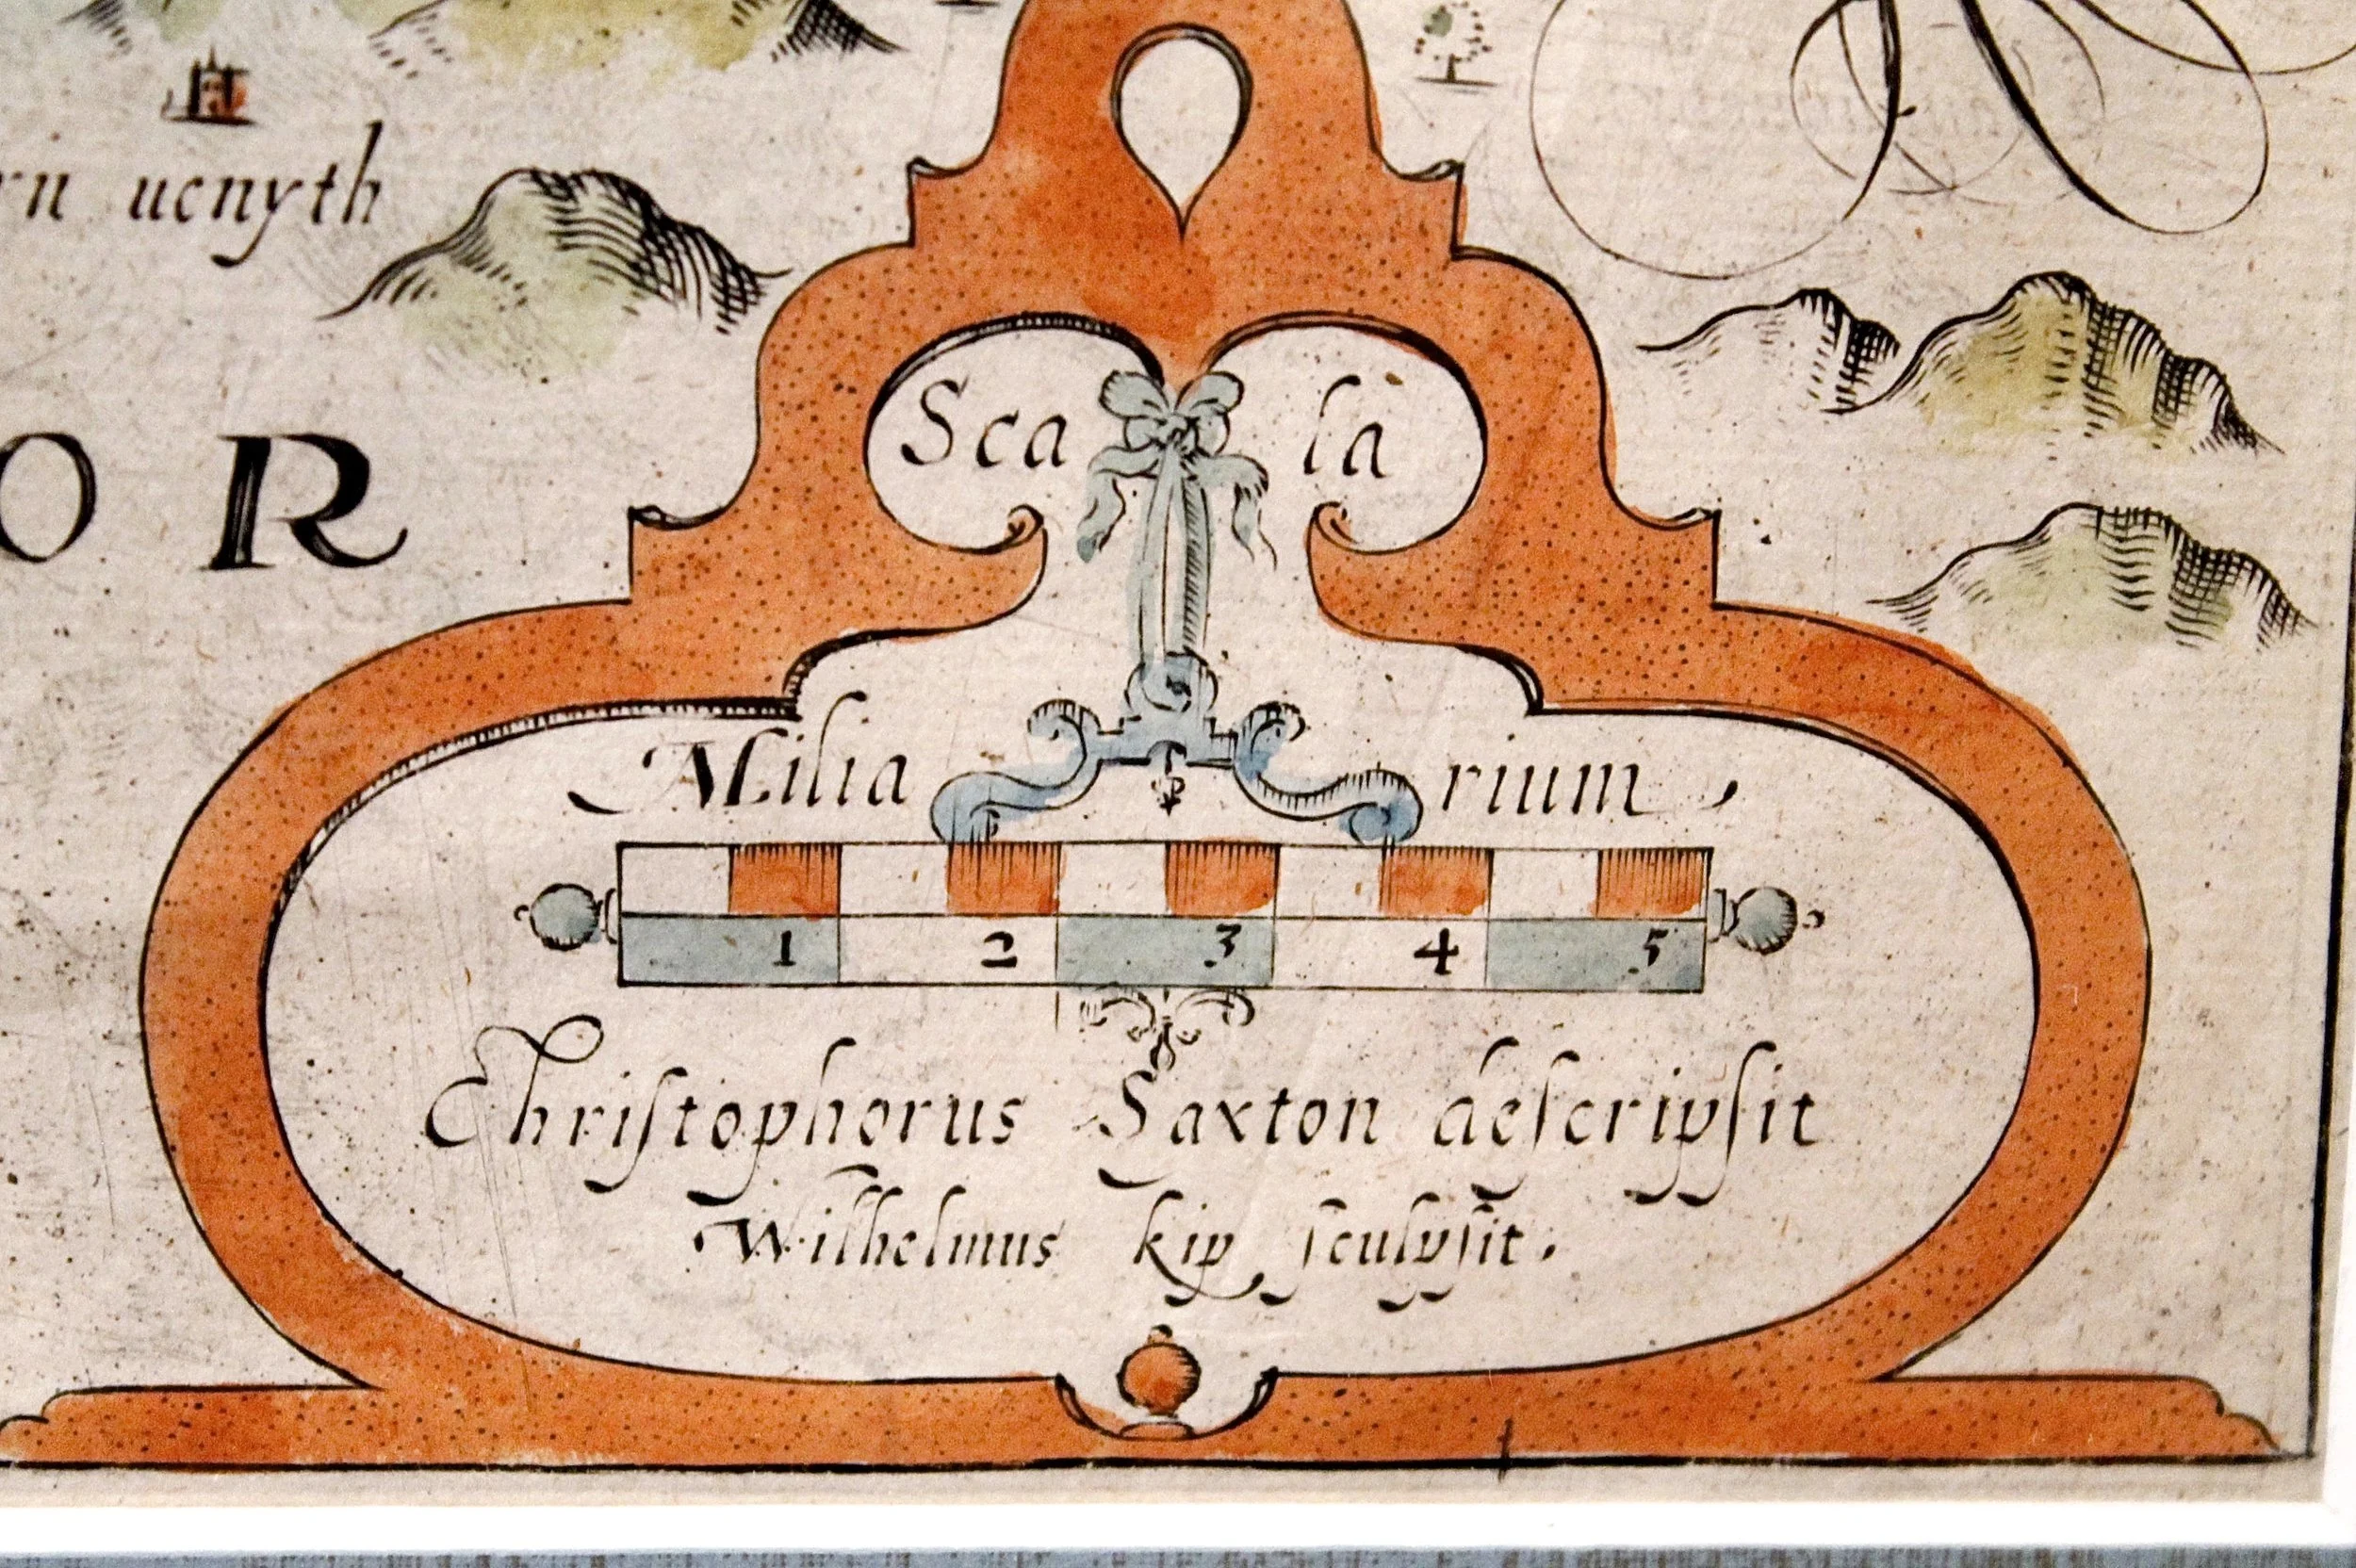 ucnyth
O R
Scala
Miliarium,
1 2 3 4 5
Chriſtophorus Saxton deſcripſit
Wilhelmus kip ſculpſit.